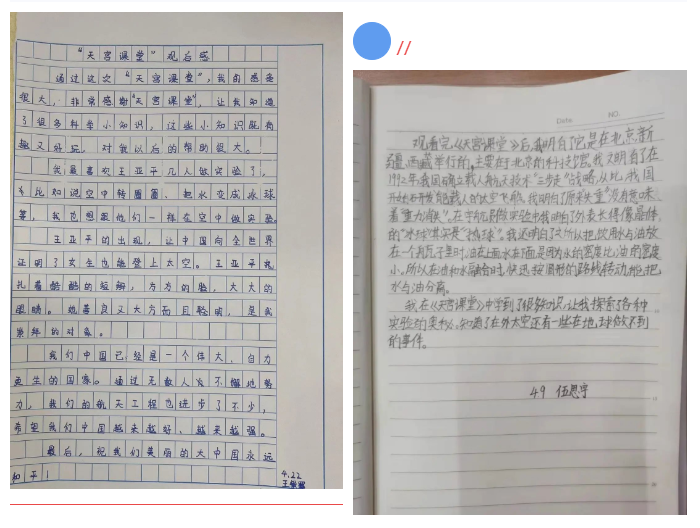 “天宫课堂”观后感
通过这次“天宫课堂”,我的感受
很大,非常感谢“天宫课堂”,让我知道
了很多科学小知识,这些小知识既有
趣又好玩,对我以后的帮助很大。
我最喜欢王亚平几人做实验了,
比如说空中转圈圈、把水变成冰球
等,我也想跟他们一样在空中做实验
王亚平的出现,让中国向全世界
证明了女生也能登上太空。王亚平
扎着酷酷的短辫,方方的脸,大大的
眼睛。她善良又大方而且聪明,是我
崇拜的对象。
我们中国已经是一个伟大,自力
更生的国家。通过无数人发不懈地努
力,我们的航天工程也进步了不少,
希望我们中国越来越好,越来越强。
最后,祝我们美丽的大中国永远
和平!
4.22
//
Date NO.
观看完《天宫课堂》后,我明白了它是在北京,新
疆,西藏举行的,主要在北京的科技馆,我又明白了在
1992年,我国确立载人航天技术“三步走”战略,从此,我国
开始研发能载人的太空飞船。我明白了原来失重“没有意味
着重力消失”。在宇航员做实验时我明白了外表长得像晶体
的“冰球”其实是“热球”。我还明白了之所以把饮用水与油放
在一个瓶子里时,油在上面,水在下面,是因为水的密度比油的密度
小。所以在油和水融合时,快速按圆形的路线转动,能把
水与油分离。
我在《天宫课堂》中学到了很多知识,让我探索了各种
实验的奥秘,知道了在外太空还有一些在地球做不到
的事件。
49 伍恩宇